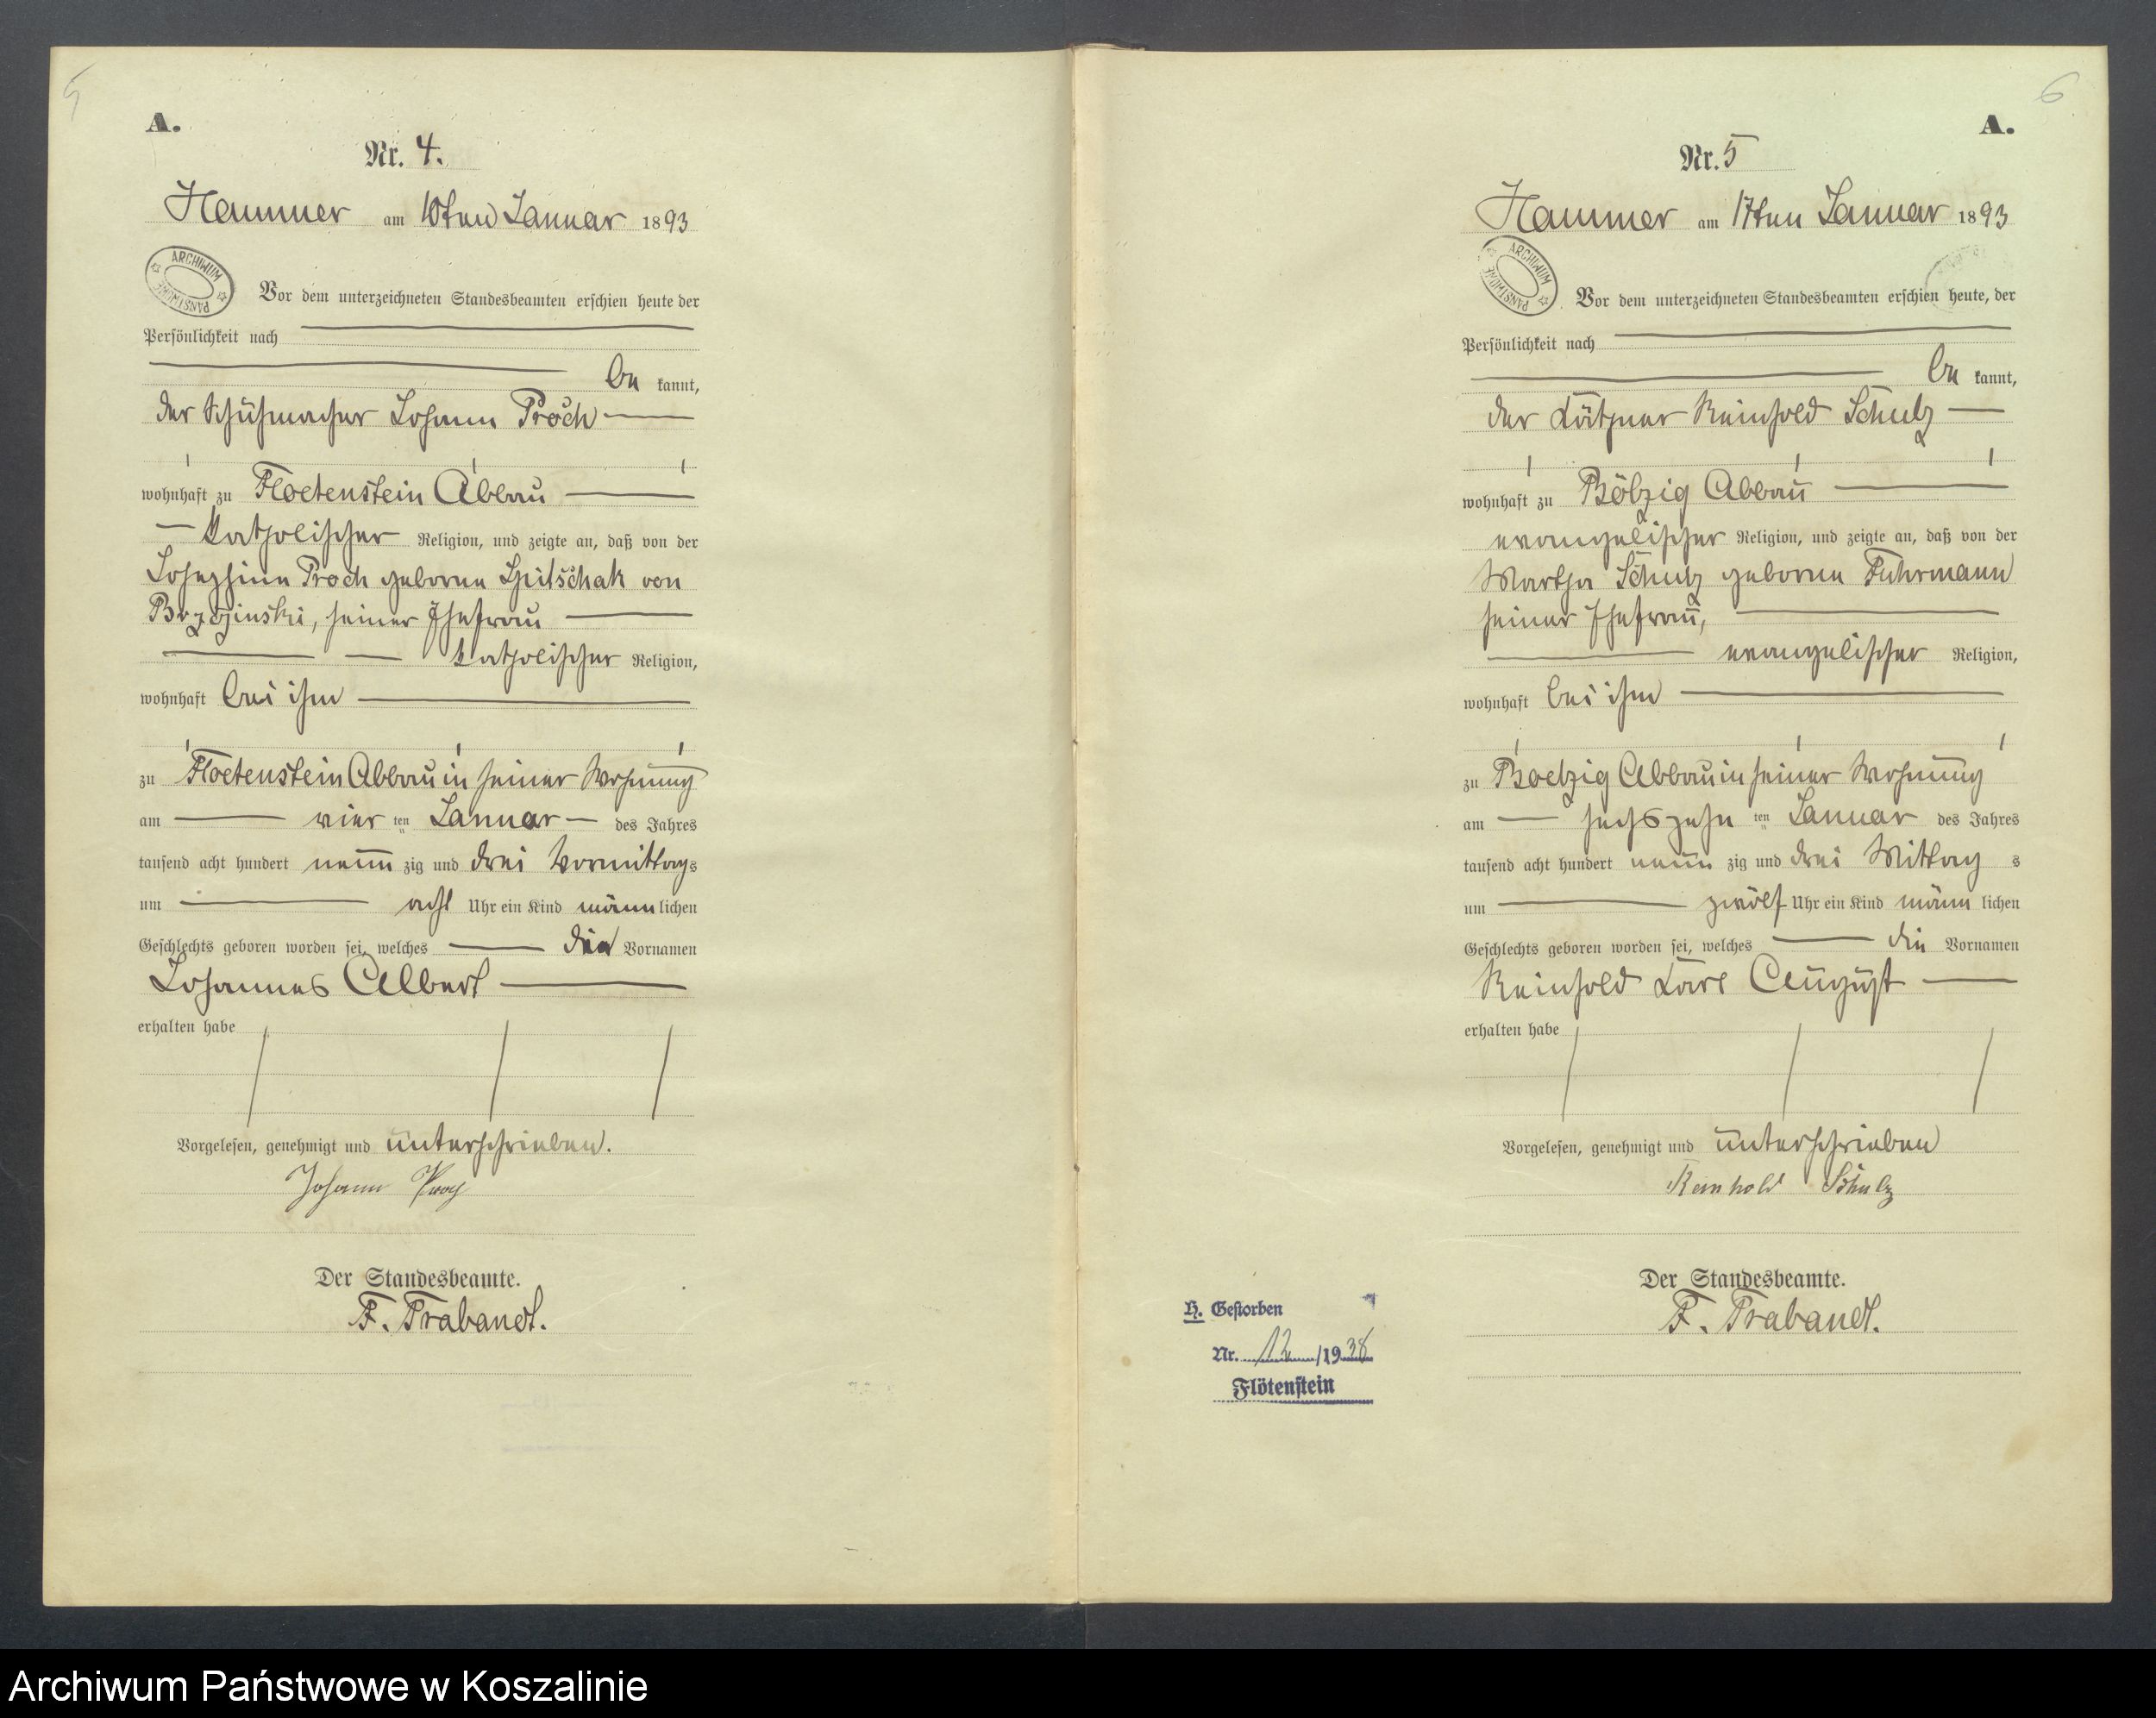 5
A.
Nr. 4.
Hammer am 10ten Januar 1893
ARCHIWUM PAŃSTWOWE
Vor dem unterzeichneten Standesbeamten erschien heute der
Persönlichkeit nach
be kannt,
der Schuhmacher Johann Proch
wohnhaft zu Floetenstein Abbau
katholischer Religion, und zeigte an, daß von der
Josephine Proch geborne Spitschak von
Brzezinski, seiner Ehefrau
katholischer Religion,
wohnhaft bei ihm
zu Floetenstein Abbau in seiner Wohnung
am vier ten Januar des Jahres
tausend acht hundert neun zig und drei Vormittags
um acht Uhr ein Kind männlichen
Geschlechts geboren worden sei, welches die Vornamen
Johannes Albert
erhalten habe
Vorgelesen, genehmigt und unterschrieben.
Johann Proch
Der Standesbeamte.
F. Trabandt.
6
A.
Nr. 5
Hammer am 17ten Januar 1893
ARCHIWUM PAŃSTWOWE
Vor dem unterzeichneten Standesbeamten erschien heute, der
Persönlichkeit nach
be kannt,
der Käthner Reinhold Schulz
wohnhaft zu Bölzig Abbau
evangelischer Religion, und zeigte an, daß von der
Martha Schulz geborne Fuhrmann
seiner Ehefrau,
evangelischer Religion,
wohnhaft bei ihm
zu Boelzig Abbau in seiner Wohnung
am sechszehn ten Januar des Jahres
tausend acht hundert neun zig und drei Mittag s
um zwölf Uhr ein Kind männ lichen
Geschlechts geboren worden sei, welches die Vornamen
Reinhold Karl August
erhalten habe
Vorgelesen, genehmigt und unterschrieben
Reinhold Schulz
Der Standesbeamte.
F. Trabandt.
H. Gestorben
Nr. 12/1938
Flötenstein
Archiwum Państwowe w Koszalinie